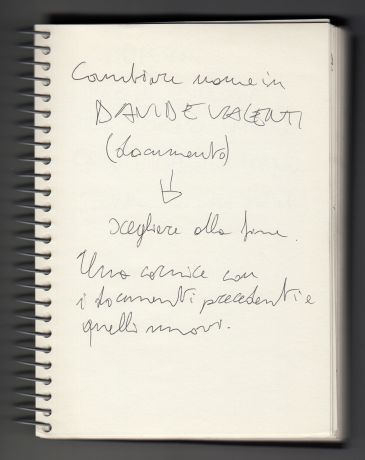 Cambiare nome in
DAVIDE VALENTI
(documento)
scegliere alla fine.
Una cornice con
i documenti precedenti e
quelli nuovi.